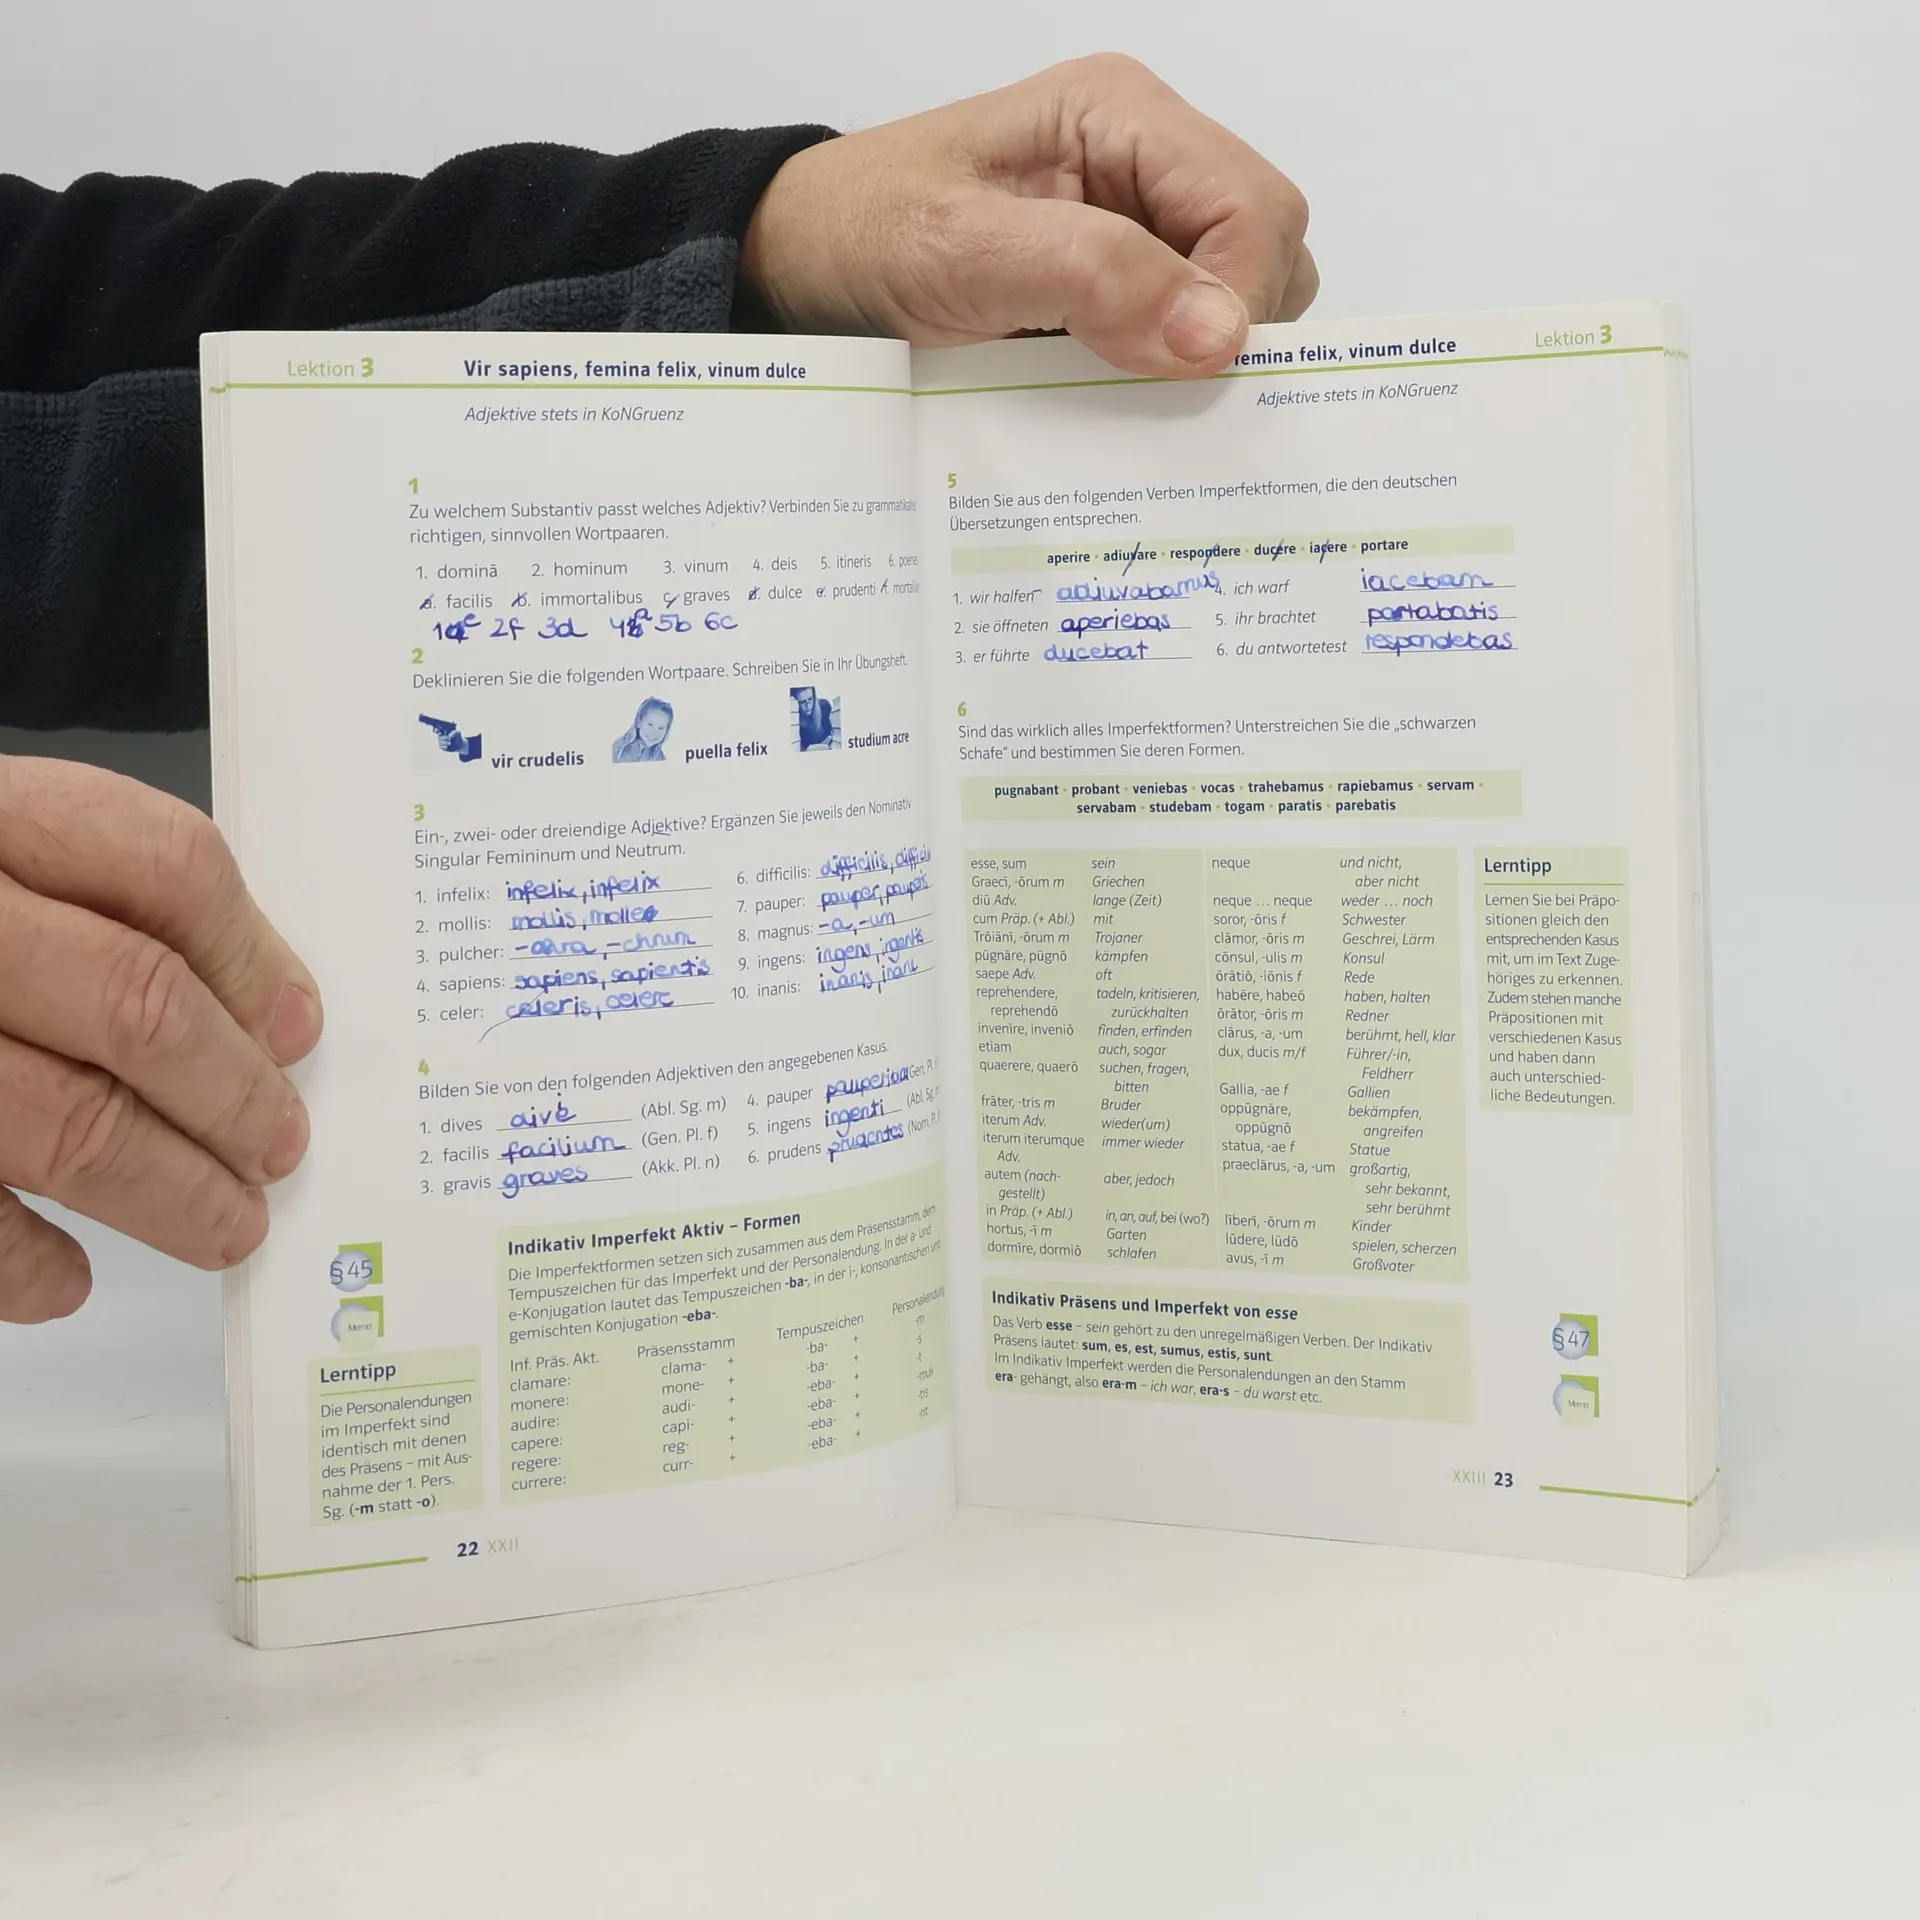 Lektion 3
Vir sapiens, femina felix, vinum dulce
Adjektive stets in KoNGruenz
1
Zu welchem Substantiv passt welches Adjektiv? Verbinden Sie zu
richtigen, sinnvollen Wortpaaren.
1. dominā 2. hominum 3. vinum 4. deis 5. itineris 6.
a. facilis b. immortalibus c. graves d. dulce e. prudenti f.
2f 3d 5b 6c
2
Deklinieren Sie die folgenden Wortpaare. Schreiben Sie in Ihr Übungsheft.
vir crudelis puella felix studium acre
3
Ein-, zwei- oder dreiendige Adjektive? Ergänzen Sie jeweils den Nominativ
Singular Femininum und Neutrum.
1. infelix: infelix, infelix
2. mollis: mollis, molle
3. pulcher:
4. sapiens: sapiens, sapientis
5. celer: celeris, celere
6. difficilis: difficilis,
7. pauper: pauper,
8. magnus: -a, -um
9. ingens: ingens, ingentis
10. inanis: inanis,
4
Bilden Sie von den folgenden Adjektiven den angegebenen Kasus.
1. dives (Abl. Sg. m)
2. facilis facilium (Gen. Pl. f)
3. gravis graves (Akk. Pl. n)
4. pauper Gen. Pl.
5. ingens ingenti (Abl. Sg.
6. prudens prudentes (Nom. Pl.
Indikativ Imperfekt Aktiv – Formen
Die Imperfektformen setzen sich zusammen aus dem Präsensstamm, dem
Tempuszeichen für das Imperfekt und der Personalendung. In der a- und
e-Konjugation lautet das Tempuszeichen -ba-, in der i-, konsonantischen und
gemischten Konjugation -eba-.
Inf. Präs. Akt. Präsensstamm Tempuszeichen Personalendung
clamare: clama- + -ba- + -m
monere: mone- + -ba- + -s
audire: audi- + -eba- + -t
capere: capi- + -eba- + -mus
regere: reg- + -eba- + -tis
currere: curr- + -eba- + -nt
§ 45
Memo
Lerntipp
Die Personalendungen
im Imperfekt sind
identisch mit denen
des Präsens – mit Aus-
nahme der 1. Pers.
Sg. (-m statt -o).
22 XXII
femina felix, vinum dulce
Lektion 3
Adjektive stets in KoNGruenz
5
Bilden Sie aus den folgenden Verben Imperfektformen, die den deutschen
Übersetzungen entsprechen.
aperire • adiuvare • respondere • ducere • iacere • portare
1. wir halfen adiuvabamus
2. sie öffneten aperiebas
3. er führte ducebat
4. ich warf iacebam
5. ihr brachtet portabatis
6. du antwortetest respondebas
6
Sind das wirklich alles Imperfektformen? Unterstreichen Sie die „schwarzen
Schafe“ und bestimmen Sie deren Formen.
pugnabant • probant • veniebas • vocas • trahebamus • rapiebamus • servam •
servabam • studebam • togam • paratis • parebatis
esse, sum sein
Graecī, -ōrum m Griechen
diū Adv. lange (Zeit)
cum Präp. (+ Abl.) mit
Trōiānī, -ōrum m Trojaner
pūgnāre, pūgnō kämpfen
saepe Adv. oft
reprehendere, tadeln, kritisieren,
reprehendō zurückhalten
invenīre, inveniō finden, erfinden
etiam auch, sogar
quaerere, quaerō suchen, fragen,
bitten
frāter, -tris m Bruder
iterum Adv. wieder(um)
iterum iterumque immer wieder
Adv.
autem (nach- aber, jedoch
gestellt)
in Präp. (+ Abl.) in, an, auf, bei (wo?)
hortus, -ī m Garten
dormīre, dormiō schlafen
neque und nicht,
aber nicht
neque ... neque weder ... noch
soror, -ōris f Schwester
clāmor, -ōris m Geschrei, Lärm
cōnsul, -ulis m Konsul
ōrātiō, -iōnis f Rede
habēre, habeō haben, halten
ōrātor, -ōris m Redner
clārus, -a, -um berühmt, hell, klar
dux, ducis m/f Führer/-in,
Feldherr
Gallia, -ae f Gallien
oppūgnāre, bekämpfen,
oppūgnō angreifen
statua, -ae f Statue
praeclārus, -a, -um großartig,
sehr bekannt,
sehr berühmt
līberī, -ōrum m Kinder
lūdere, lūdō spielen, scherzen
avus, -ī m Großvater
Lerntipp
Lernen Sie bei Präpo-
sitionen gleich den
entsprechenden Kasus
mit, um im Text Zuge-
höriges zu erkennen.
Zudem stehen manche
Präpositionen mit
verschiedenen Kasus
und haben dann
auch unterschied-
liche Bedeutungen.
Indikativ Präsens und Imperfekt von esse
Das Verb esse – sein gehört zu den unregelmäßigen Verben. Der Indikativ
Präsens lautet: sum, es, est, sumus, estis, sunt.
Im Indikativ Imperfekt werden die Personalendungen an den Stamm
era- gehängt, also era-m – ich war, era-s – du warst etc.
§ 47
Memo
XXIII 23